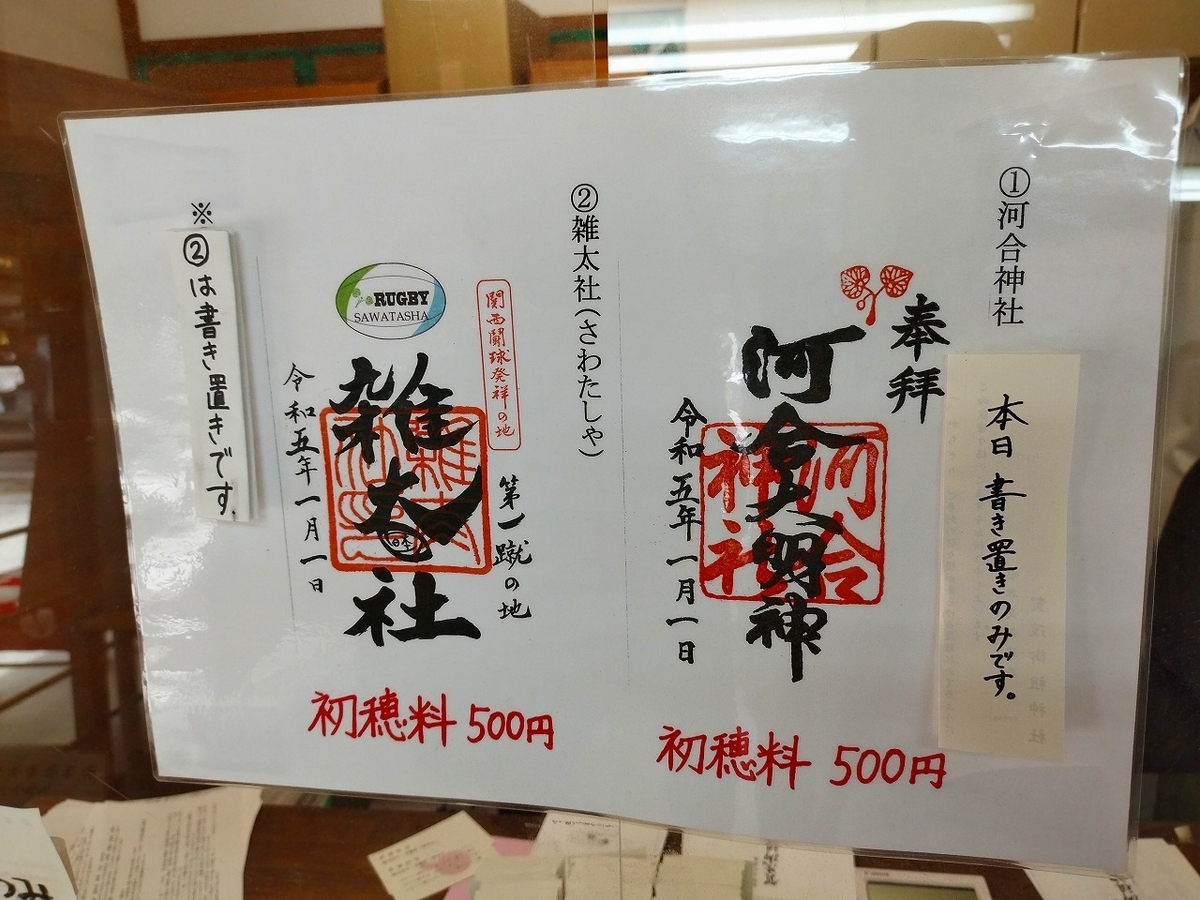 ①河合神社
本日 書き置きのみです。
奉拝
河合大明神
河合神社
令和五年一月一日
初穂料 500円
②雑太社(さわたしゃ)
関西闘球発祥の地
第一蹴の地
RUGBY
SAWATASHA
雑太社
日本
令和五年一月一日
初穂料 500円
※②は書き置きです。